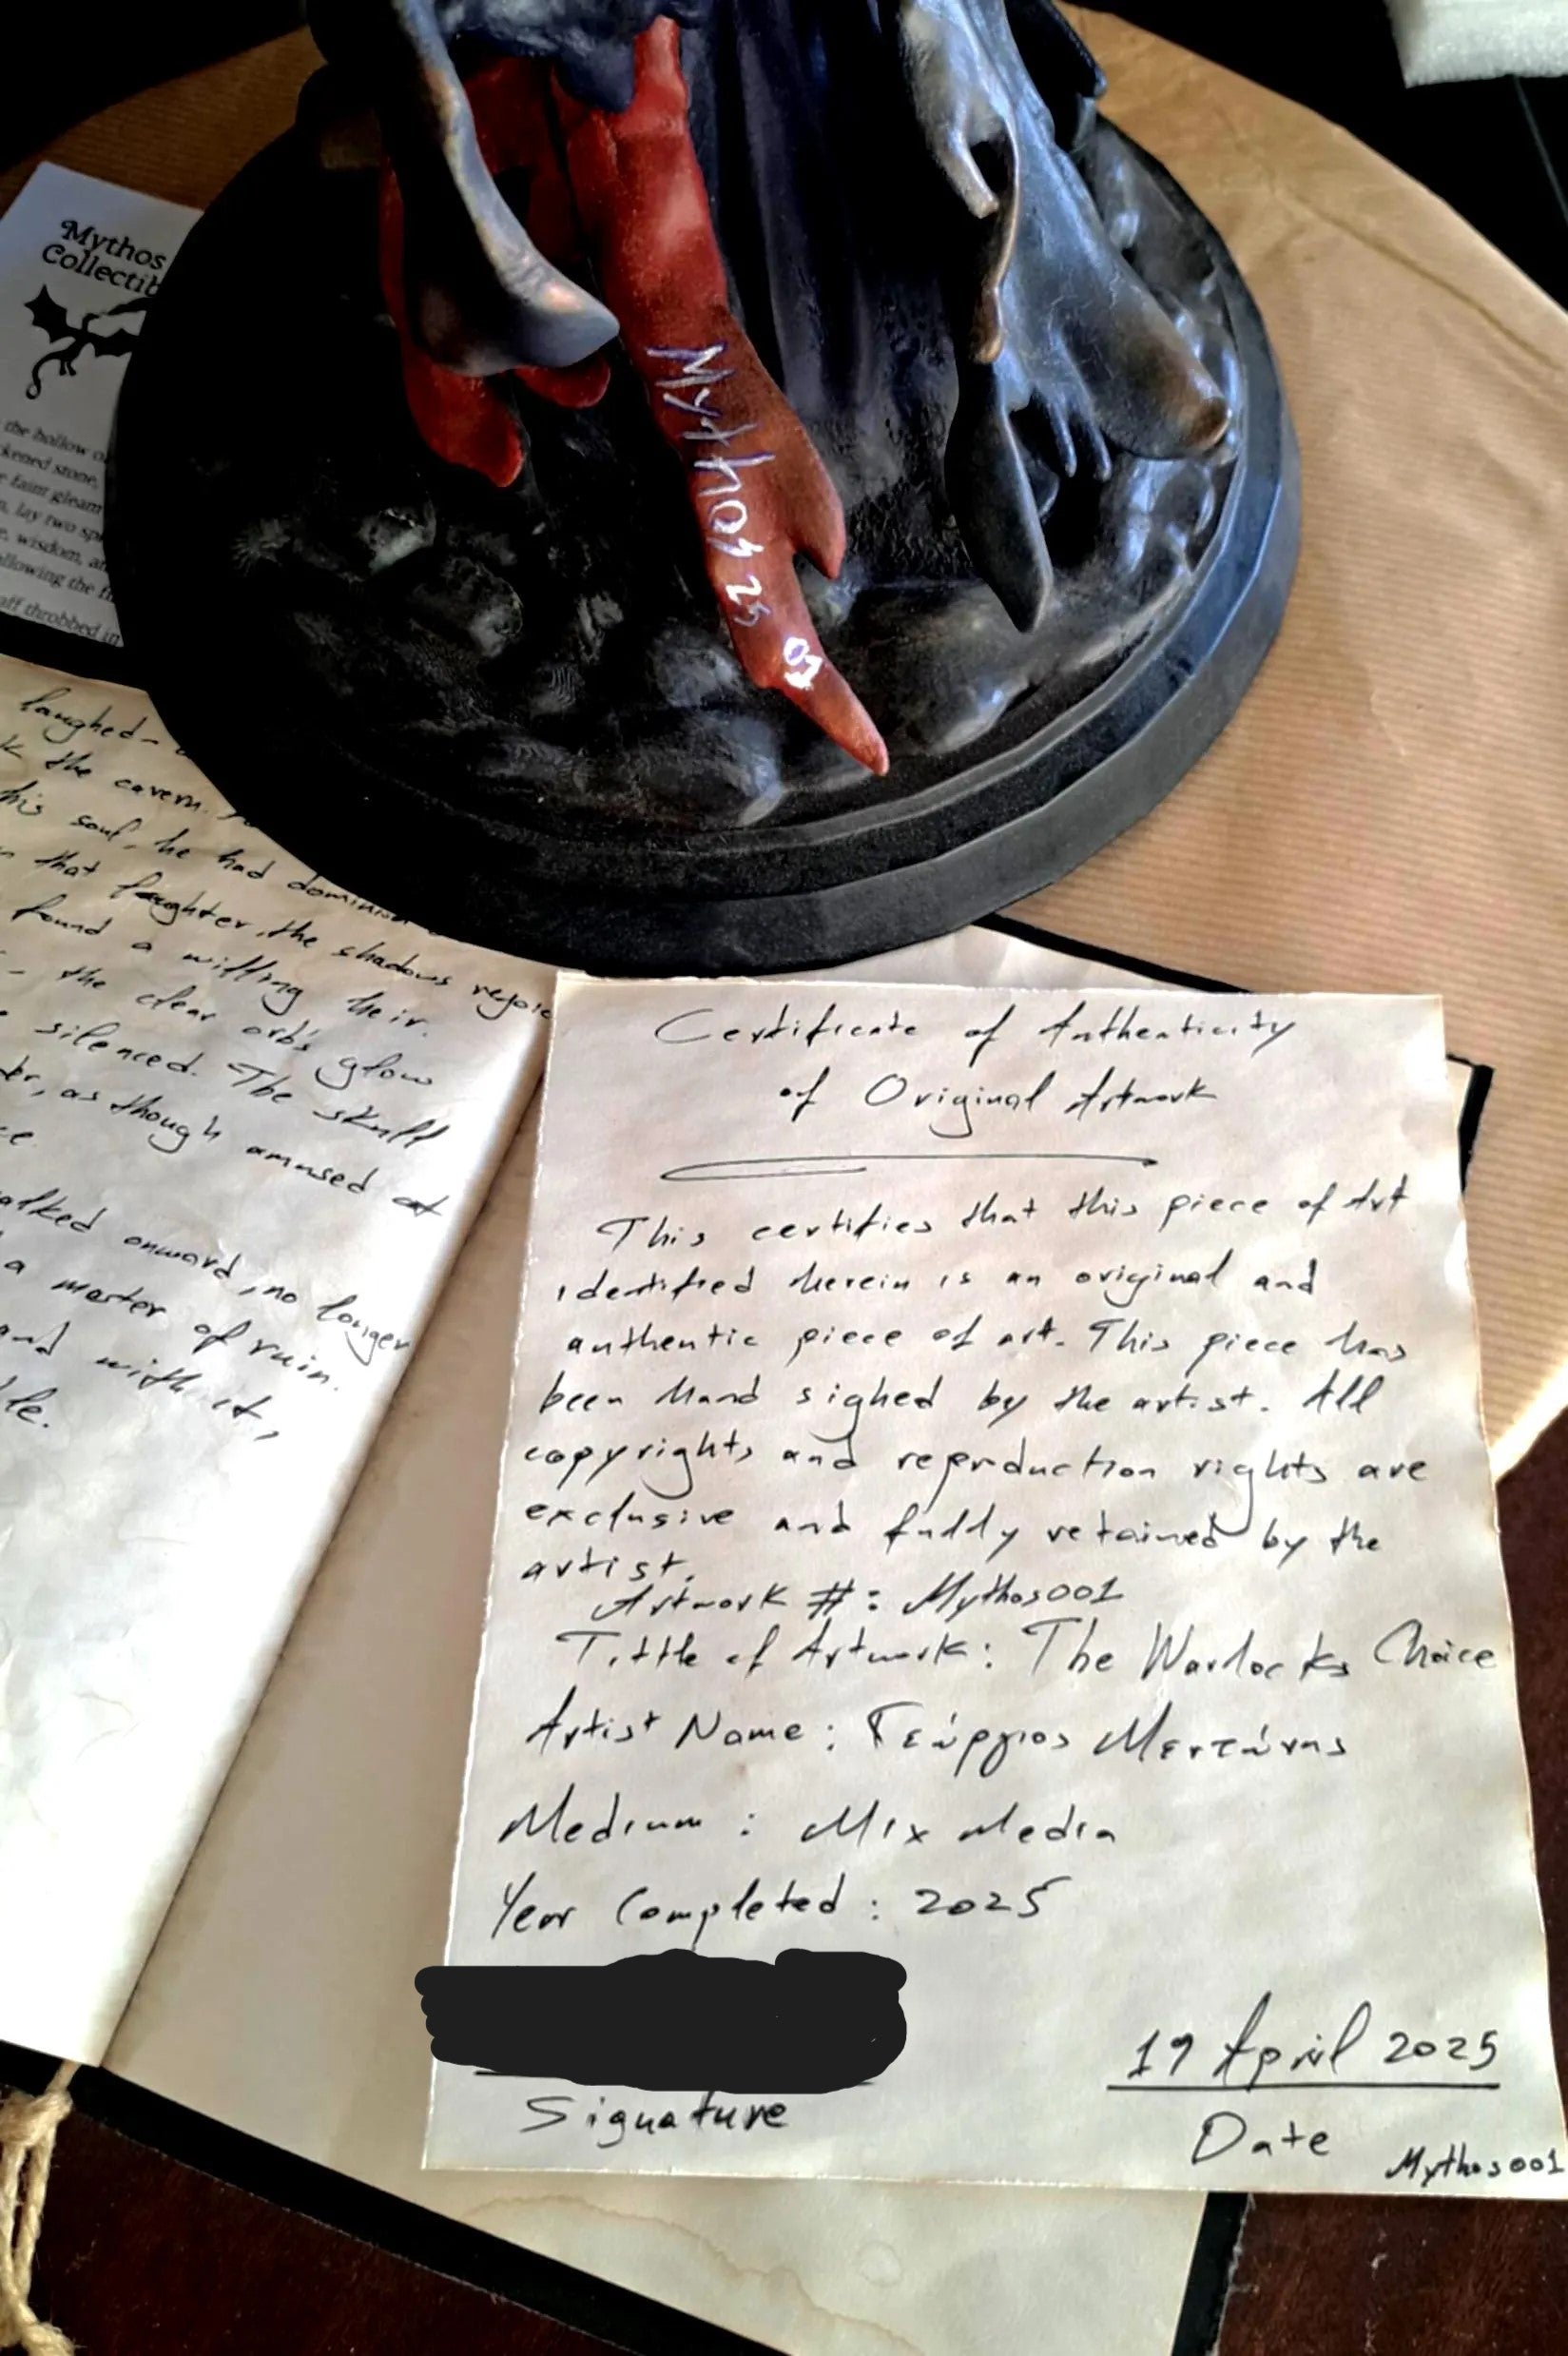 Mythos
Collectib
the hollow o
kened stone,
faint gleam
, lay two sp
, wisdom, a
allowing the fi
aff throbbed in
Mythos 25
laughed-
the cavern.
his soul, he had dominion
that laughter, the shadows rejoic
found a willing heir.
- the clear orb's glow
silenced. The skull
, as though amused at
ce.
alked onward, no longer
a master of ruin.
and with it,
le.
Certificate of Authenticity
of Original Artwork
This certifies that this piece of Art
identified herein is an original and
authentic piece of art. This piece has
been Hand sighed by the artist. All
copyrights and reproduction rights are
exclusive and fully retained by the
artist.
Artwork #: Mythos001
Tittle of Artwork: The Warlocks Choice
Artist Name: Γεώργιος
Medium: Mix Media
Year Completed: 2025
19 April 2025
Signature
Date
Mythos001